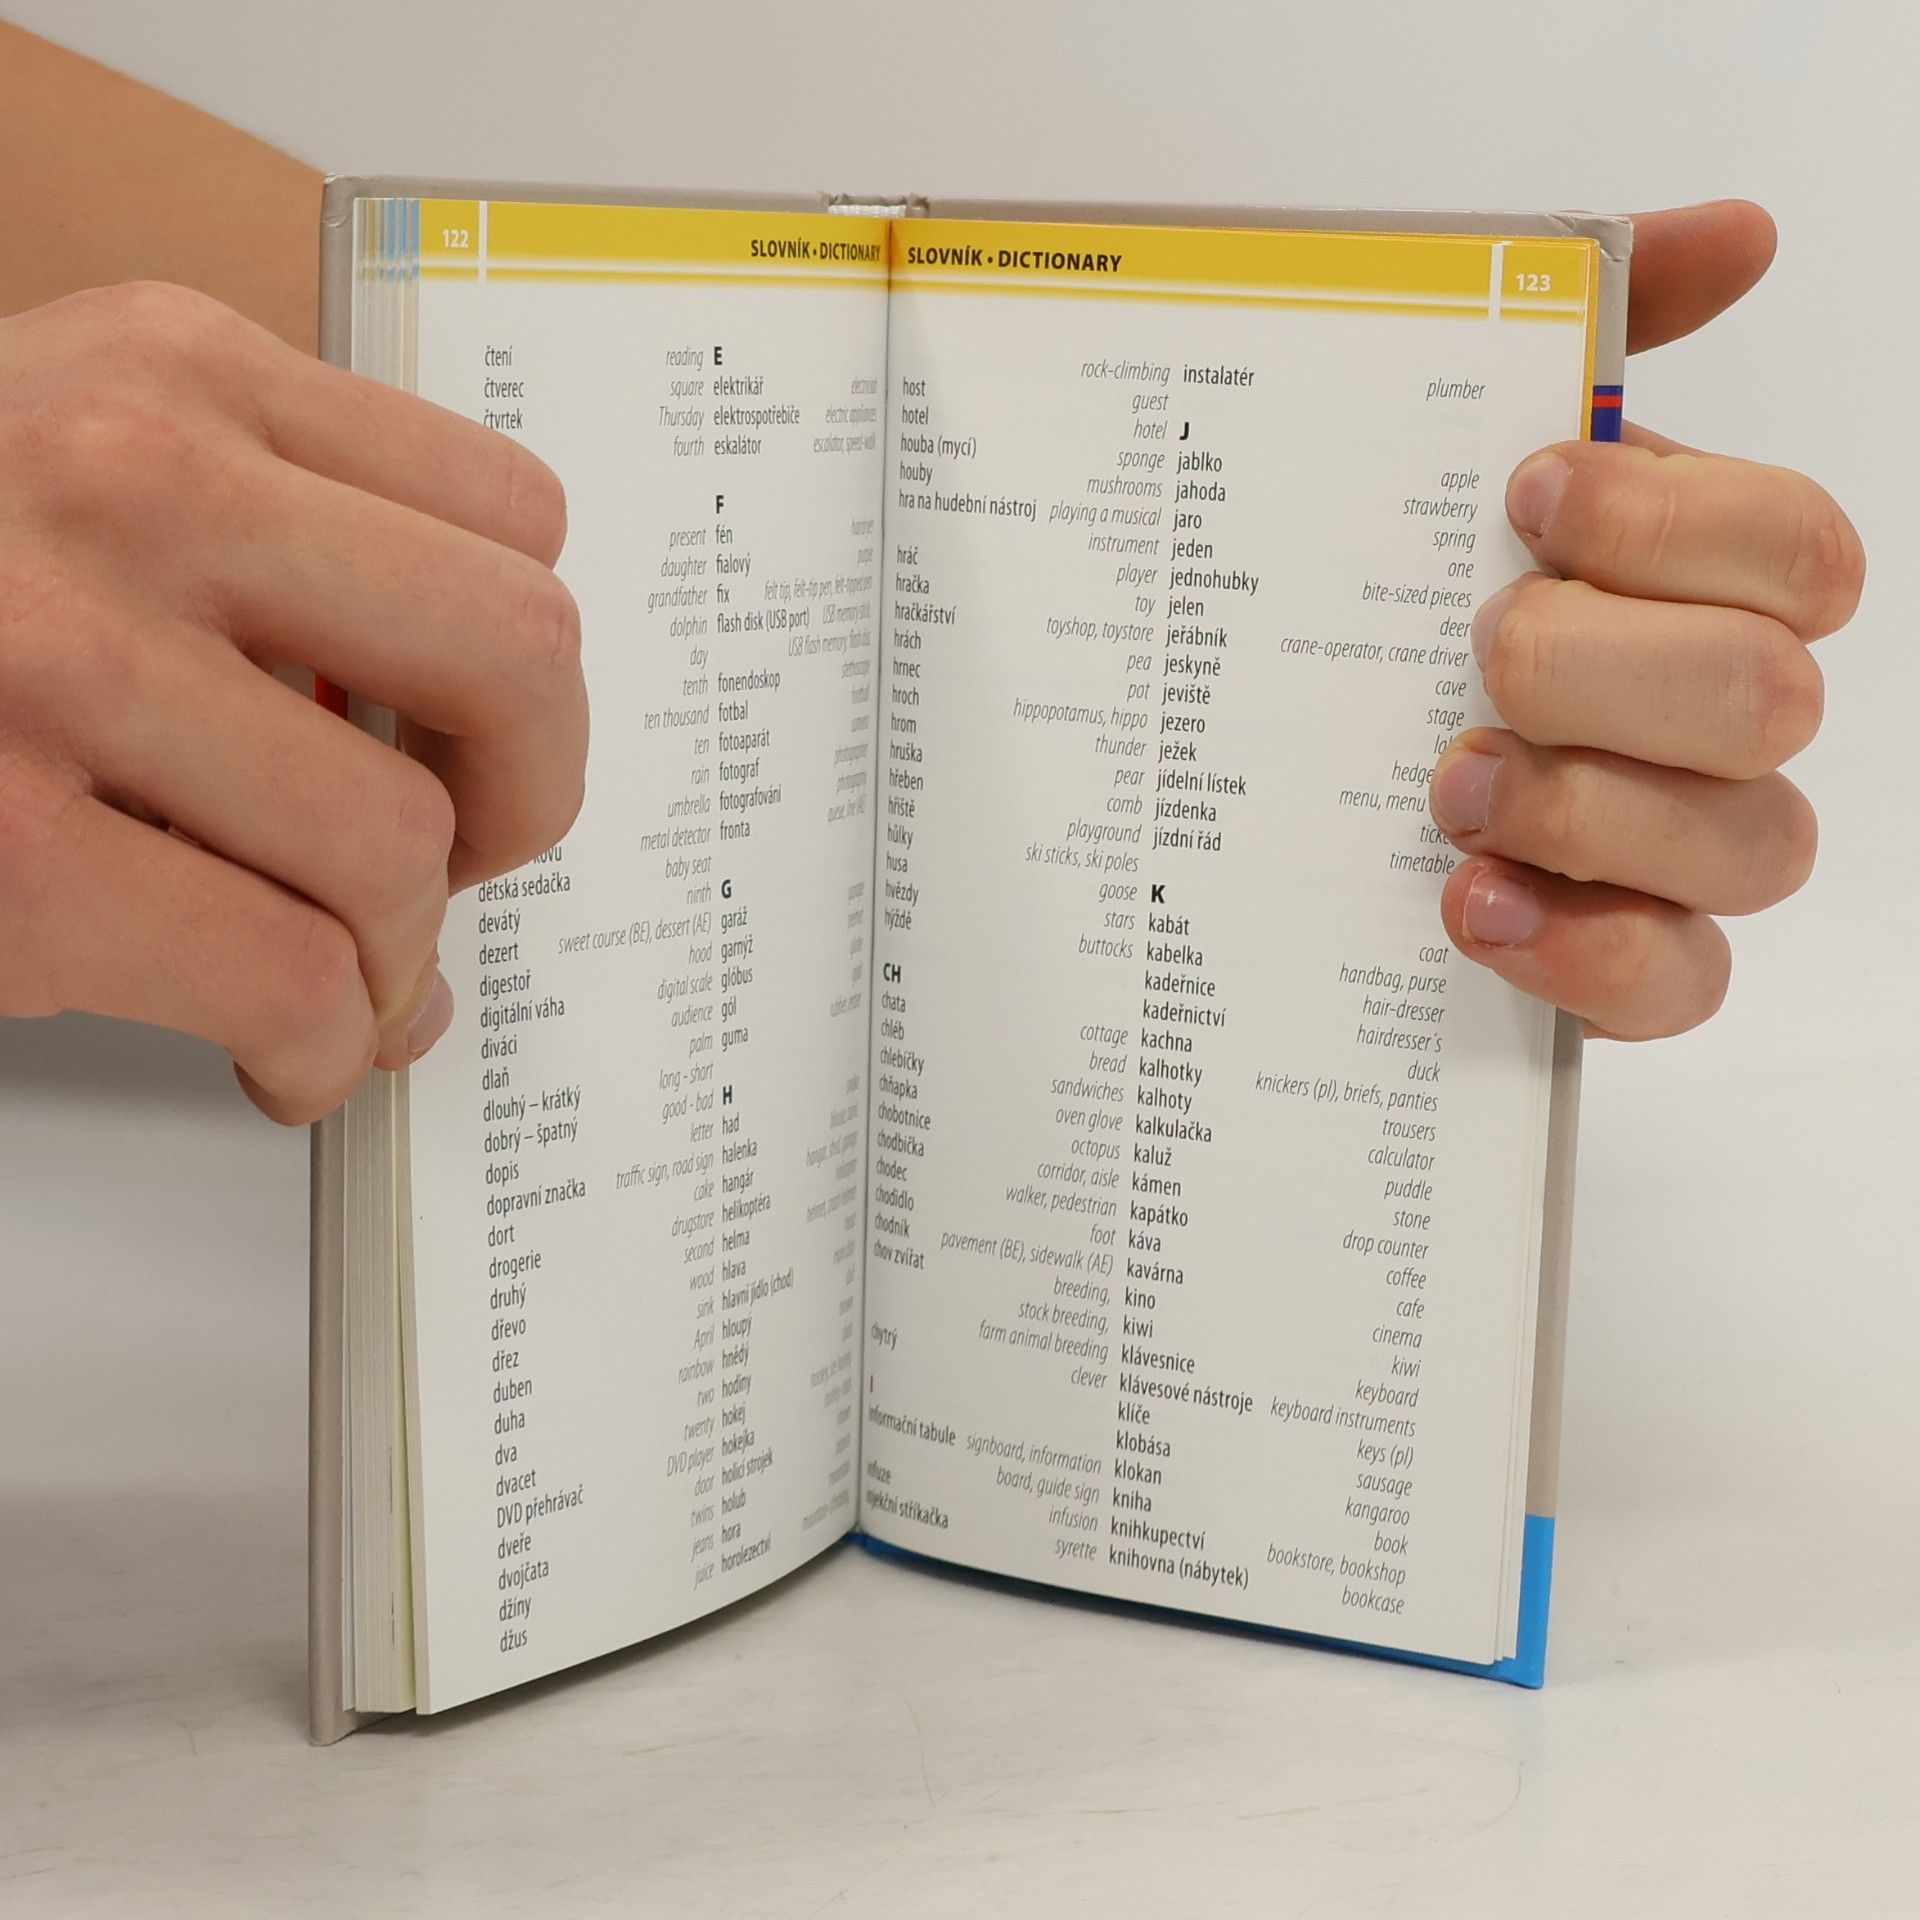 122
SLOVNÍK • DICTIONARY
čtení reading
čtverec square
čtvrtek Thursday
fourth
present
daughter
grandfather
dolphin
day
tenth
ten thousand
ten
rain
umbrella
metal detector
dětská sedačka baby seat
devátý ninth
dezert sweet course (BE), dessert (AE)
digestoř hood
digitální váha digital scale
diváci audience
dlaň palm
dlouhý – krátký long - short
dobrý – špatný good - bad
dopis letter
dopravní značka traffic sign, road sign
dort cake
drogerie drugstore
druhý second
dřevo wood
dřez sink
duben April
duha rainbow
dva two
dvacet twenty
DVD přehrávač DVD player
dveře door
dvojčata twins
džíny jeans
džus juice
E
elektrikář electrician
elektrospotřebiče electric appliances
eskalátor escalator, speed-walk
F
fén hairdryer
fialový purple
fix felt tip, felt-tip pen, felt-tipped pen
flash disk (USB port) USB memory stick,
USB flash memory, flash disc
fonendoskop stethoscope
fotbal football
fotoaparát camera
fotograf photographer
fotografování photography
fronta queue, line (AE)
G
garáž garage
garnýž
glóbus globe
gól goal
guma
H
had snake
halenka
hangár hangar, shed, garage
helikoptéra helicopter
helma
hlava head
hlavní jídlo (chod)
hloupý
hnědý brown
hodiny
hokej
hokejka
holicí strojek
holub
hora mountain
horolezectví
SLOVNÍK • DICTIONARY
123
rock-climbing
host guest
hotel hotel
houba (mycí) sponge
houby mushrooms
hra na hudební nástroj playing a musical
instrument
hráč player
hračka toy
hračkářství toyshop, toystore
hrách pea
hrnec pot
hroch hippopotamus, hippo
hrom thunder
hruška pear
hřeben comb
hřiště playground
hůlky ski sticks, ski poles
husa goose
hvězdy stars
hýždě buttocks
CH
chata cottage
chléb bread
chlebíčky sandwiches
chňapka oven glove
chobotnice octopus
chodbička corridor, aisle
chodec walker, pedestrian
chodidlo foot
chodník pavement (BE), sidewalk (AE)
chov zvířat breeding,
stock breeding,
farm animal breeding
chytrý clever
I
informační tabule signboard, information
board, guide sign
infuze infusion
injekční stříkačka syrette
instalatér plumber
J
jablko apple
jahoda strawberry
jaro spring
jeden one
jednohubky bite-sized pieces
jelen deer
jeřábník crane-operator, crane driver
jeskyně cave
jeviště stage
jezero
ježek
jídelní lístek menu, menu
jízdenka
jízdní řád timetable
K
kabát coat
kabelka handbag, purse
kadeřnice hair-dresser
kadeřnictví hairdresser´s
kachna duck
kalhotky knickers (pl), briefs, panties
kalhoty trousers
kalkulačka calculator
kaluž puddle
kámen stone
kapátko drop counter
káva coffee
kavárna cafe
kino cinema
kiwi kiwi
klávesnice keyboard
klávesové nástroje keyboard instruments
klíče keys (pl)
klobása sausage
klokan kangaroo
kniha book
knihkupectví bookstore, bookshop
knihovna (nábytek) bookcase